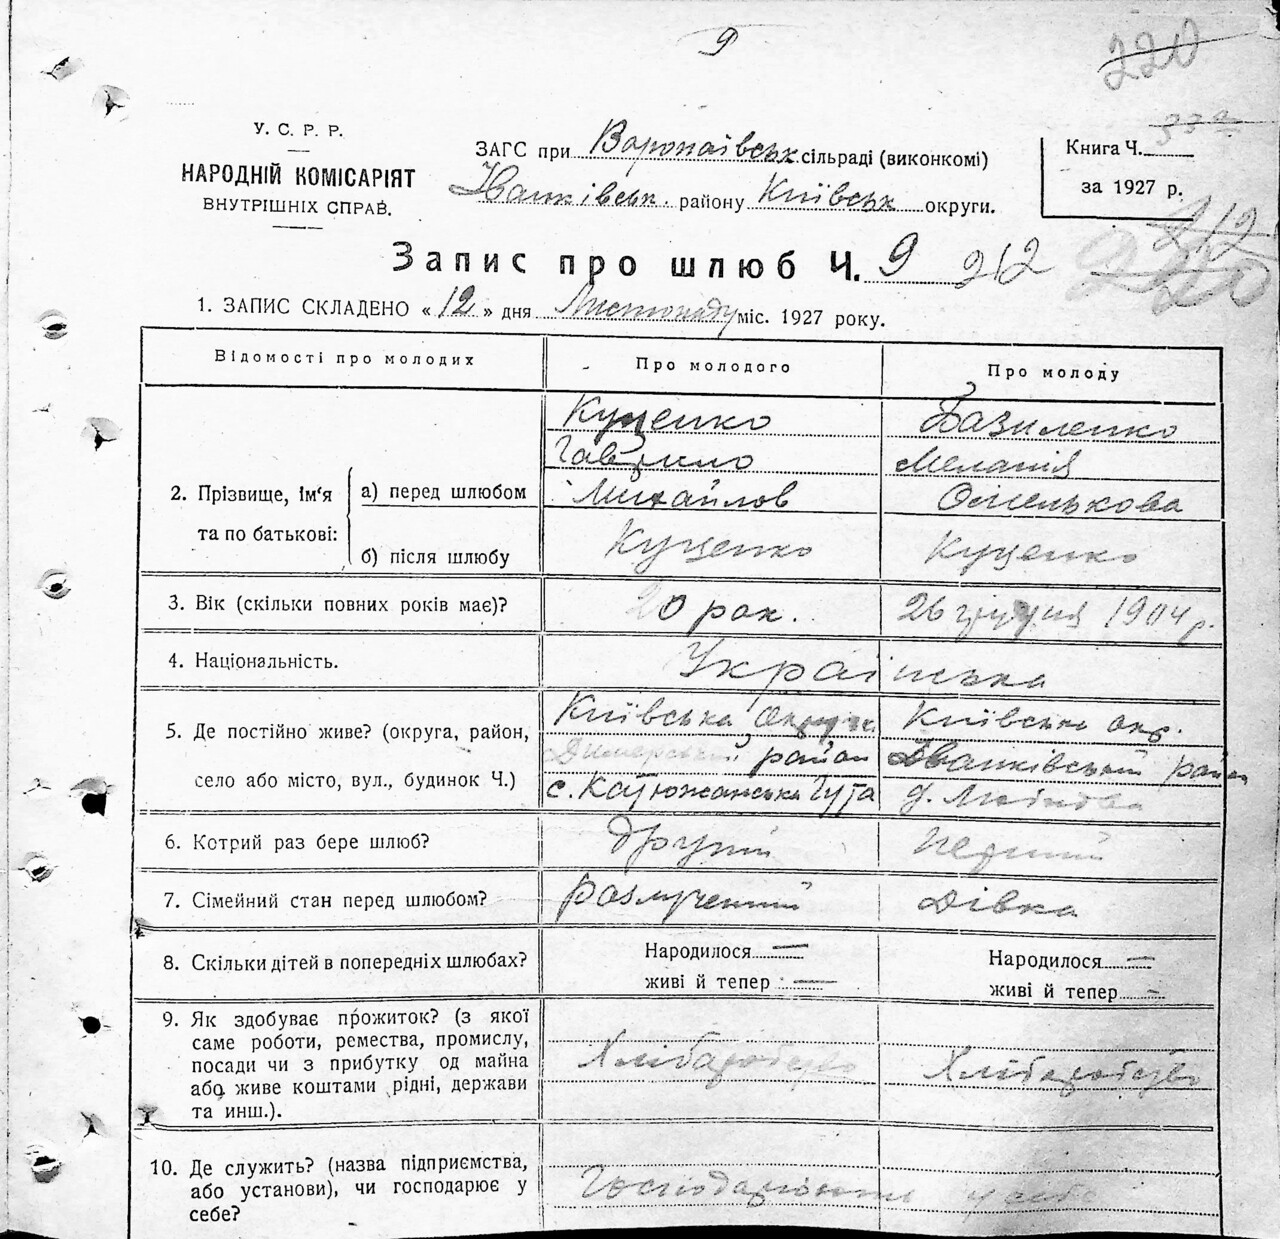 9
220
У. С. Р. Р.
НАРОДНІЙ КОМІСАРІЯТ
ВНУТРІШНІХ СПРАВ.
ЗАГС при Воропаївськ сільраді (виконкомі)
Іванківськ. району Київськ округи.
Книга Ч.
за 1927 р.
212
220
Запис про шлюб Ч. 9 212
1. ЗАПИС СКЛАДЕНО «12» дня Листопаду міс. 1927 року.
Відомості про молодих
Про молодого
Про молоду
2. Прізвище, ім'я та по батькові:
а) перед шлюбом
Куценко
Гаврило
Михайлов
Базиленко
Меланія
Омелькова
б) після шлюбу
Куценко
Куценко
3. Вік (скільки повних років має)?
20 рок.
26 грудня 1904 р.
4. Національність.
Українська
5. Де постійно живе? (округа, район,
село або місто, вул., будинок Ч.)
Київська Округа
Димерський район
с. Катюжанська Гута
Київська окр.
Іванківський район
6. Котрий раз бере шлюб?
другий
перший
7. Сімейний стан перед шлюбом?
розлучений
дівка
8. Скільки дітей в попередніх шлюбах?
Народилося —
живі й тепер —
Народилося —
живі й тепер —
9. Як здобуває прожиток? (з якої
саме роботи, ремества, промислу,
посади чи з прибутку од майна
або живе коштами рідні, держави
та инш.).
Хліборобство
Хліборобство
10. Де служить? (назва підприємства,
або установи), чи господарює у
себе?
Господарюють у себе